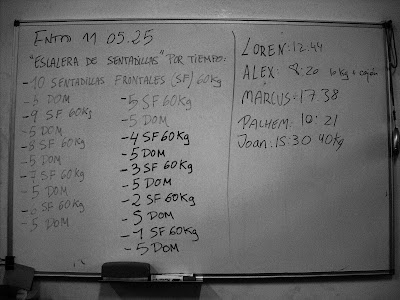 ENTNO 11 05.25
"ESCALERA DE SENTADILLAS" POR TIEMPO:
-10 SENTADILLAS FRONTALES (SF) 60Kg
-5 DOM
-9 SF 60Kg
-5 DOM
-8 SF 60Kg
-5 DOM
-7 SF 60Kg
-5 DOM
-6 SF 60Kg
-5 DOM
-5 SF 60Kg
-5 DOM
-4 SF 60Kg
-5 DOM
-3 SF 60Kg
-5 DOM
-2 SF 60Kg
-5 DOM
-1 SF 60Kg
-5 DOM
LOREN: 12:44
ALEX: 8:20 10kg + cajón
MARCUS: 17:38
PALHEM: 21
Joan: 15:30 40Kg